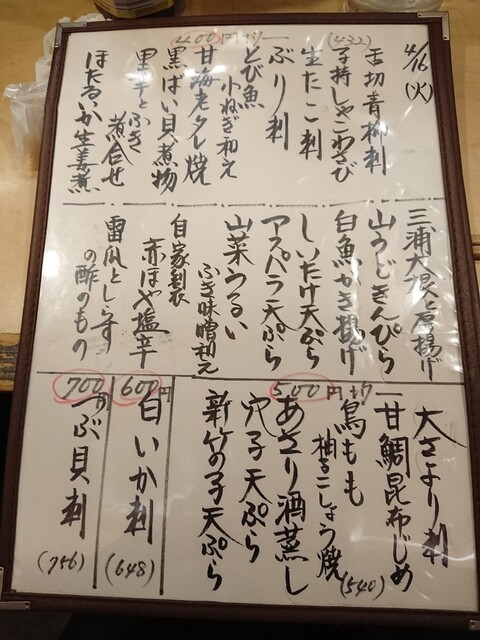 4/16(火)
400円均一
(432)
舌切青柳刺
子持しゃこわさび
生たこ刺
ぶり刺
とび魚
小ねぎ和え
甘海老タレ焼
黒ばい貝煮物
里芋とふき
煮合せ
ほたるいか生姜煮
三浦大根と厚揚げ
山うどきんぴら
白魚かき揚げ
しいたけ天ぷら
アスパラ天ぷら
山菜うるい
ふき味噌和え
自家製
赤ほや塩辛
雷瓜としらす
の酢のもの
500円均一
大さより刺
甘鯛昆布じめ
鳥もも
柚子こしょう焼
あさり酒蒸し
穴子天ぷら
新竹の子天ぷら
(540)
600円
白いか刺
(648)
700円
つぶ貝刺
(756)